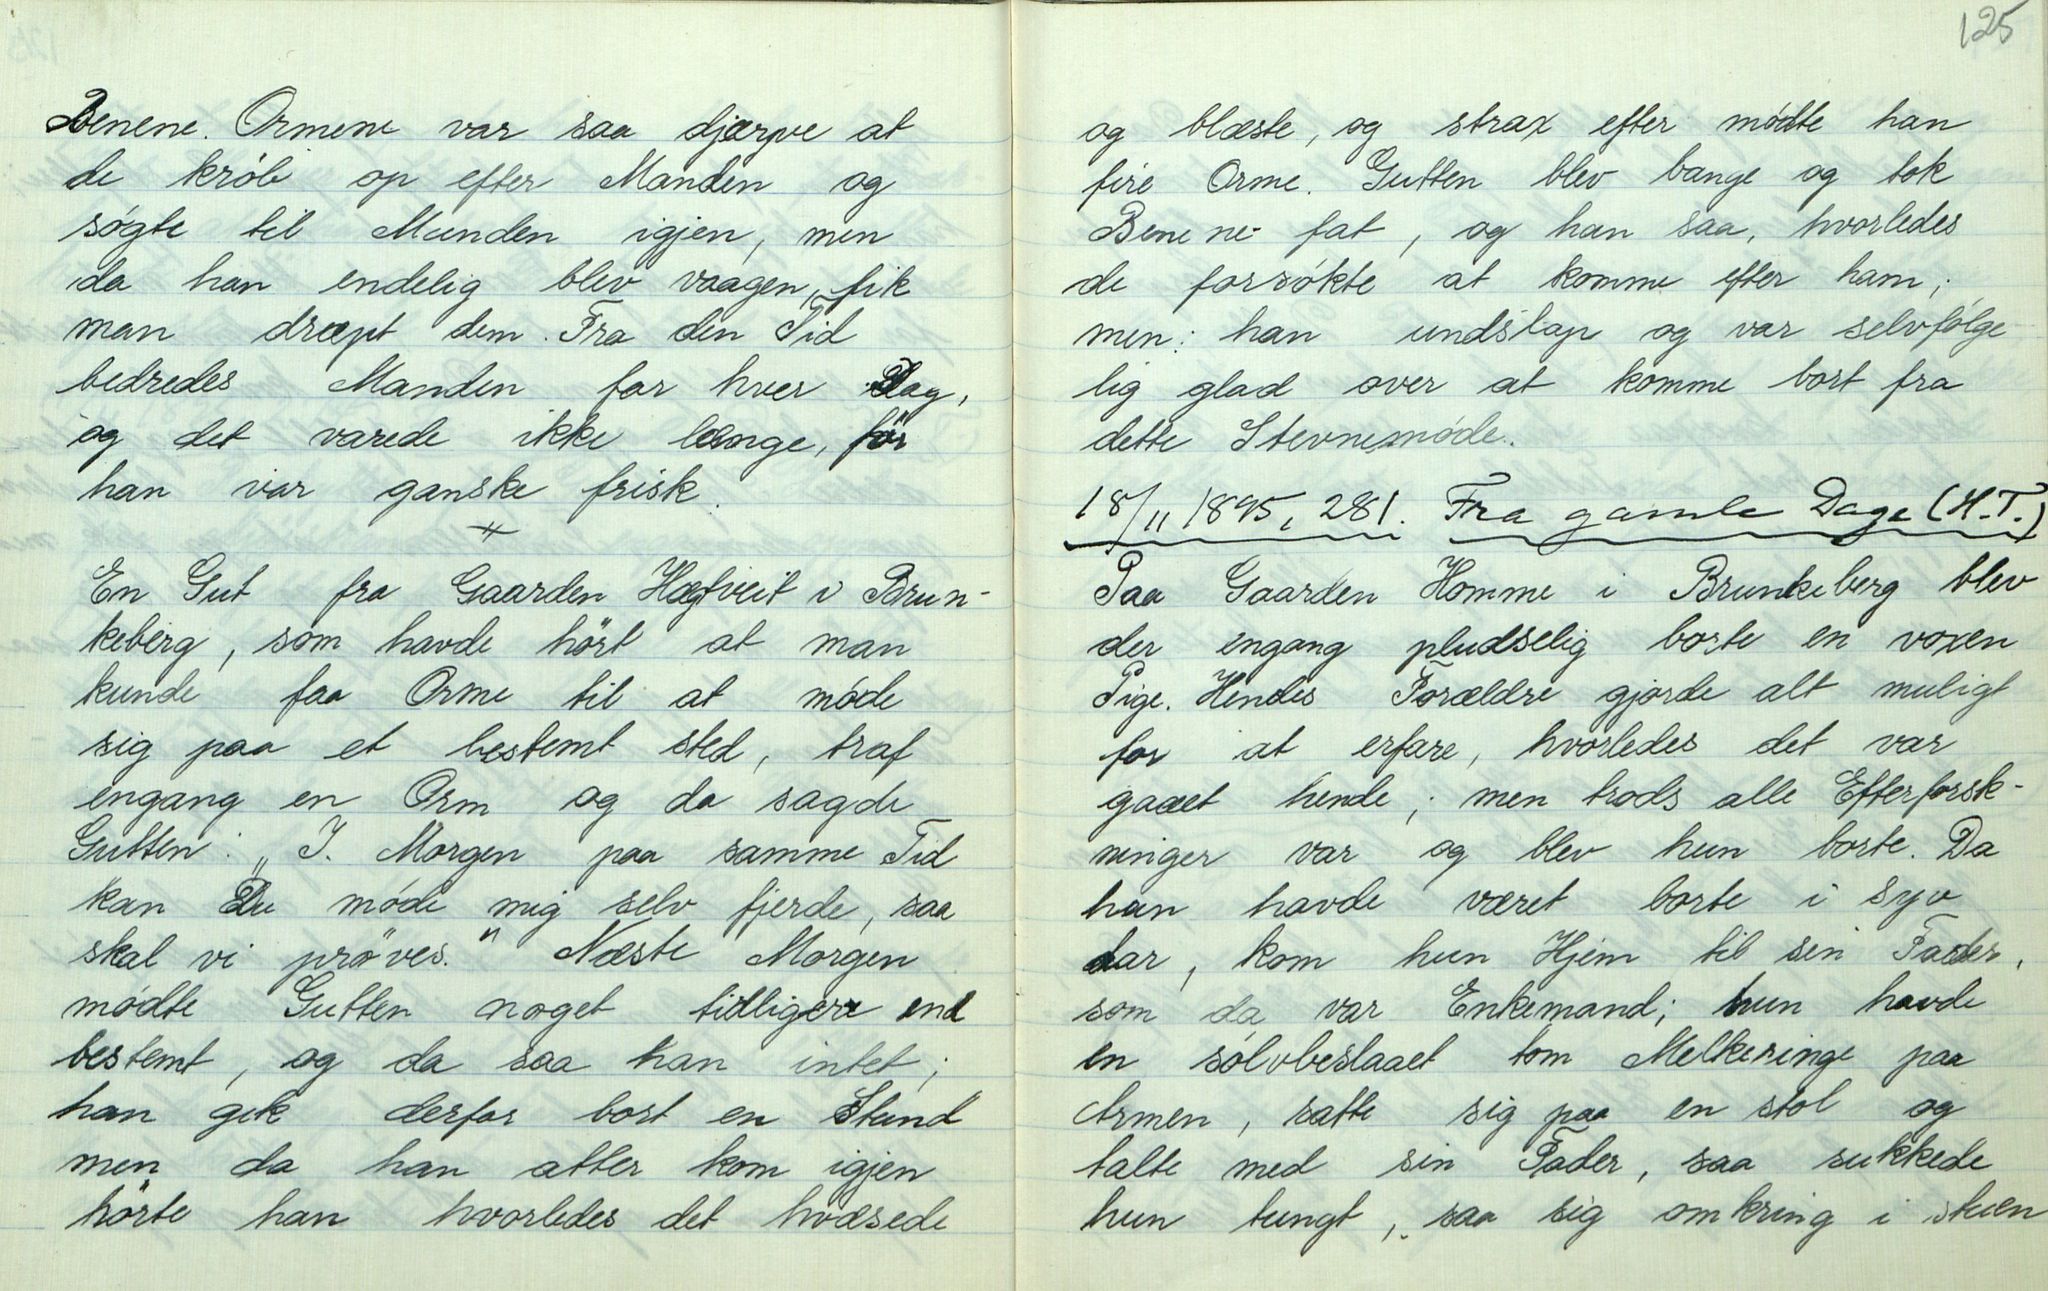 Benene. Ormene var saa djærve at
de krób op efter Manden og
søgte til Munden igjen, men
da han endelig blev vaagen, fik
man dræpt dem. Fra den Tid
bedredes Manden for hver Dag,
og det varede ikke længe, før
han var ganske frisk.
En Gut fra Gaarden Hægtveit i Brun-
keberg, som havde hört at man
kunde faa Orme til at móde
sig paa et bestemt sted, traf
engang en Orm og da sagde
Gutten: „I Morgen paa samme Tid
kan Du móde mig selv fjerde, saa
skal vi pröves." Næste Morgen
módte Gutten noget tidligere end
bestemt, og da saa han intet;
han gik derfor bort en Stund
men da han atter kom igjen
hörte han hvorledes det hvæsede
125
og blæste, og strax efter módte han
fire Orme. Gutten blev bange og tok
Benene fat, og han saa, hvorledes
de forsókte at komme efter ham;
men han undslap og var selvfólge
lig glad over at komme bort fra
dette Stevnemóde.
18/11 1895, 281. Fra gamle Dage (H.T.)
Paa Gaarden Homme i Brunkeberg blev
der engang pludselig borte en voxen
Pige. Hendes Forældre gjorde alt muligt
for at erfare, hvorledes det var
gaaet hende; men trods alle Efterforsk-
ninger var og blev hun borte. Da
hun havde været borte i syv
aar, kom hun Hjem til sin Fader,
som da var Enkemand; hun havde
en sólvbeslaaet tom Melkeringe paa
Armen, satte sig paa en stol og
talte med sin Fader, saa sukkede
hun tungt, saa sig omkring i stuen